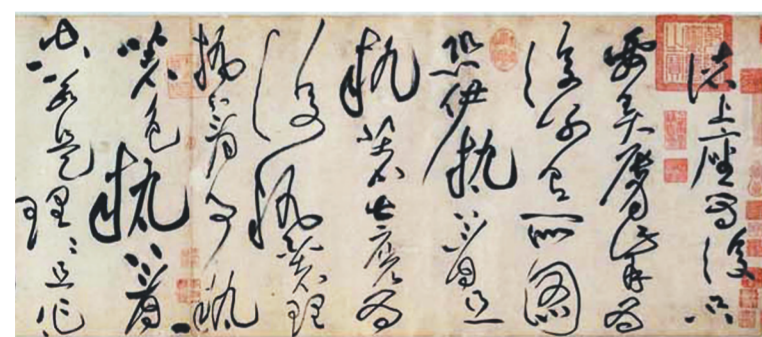 諸上座為復只
要弄脣觜為
復別有所圖
恐伊執著且
執著甚麼為
復執著理
執著事執
著色執著
空若是理理且作